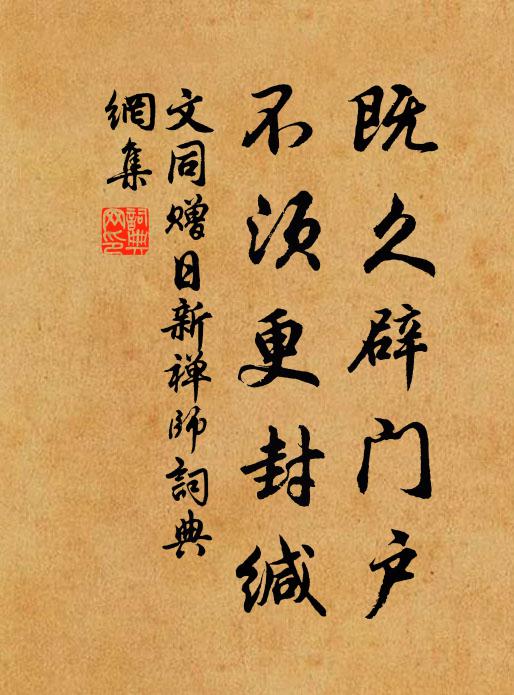 既久辟门户
不须更封缄
文同赠日新禅师词典
網集
詞典網印